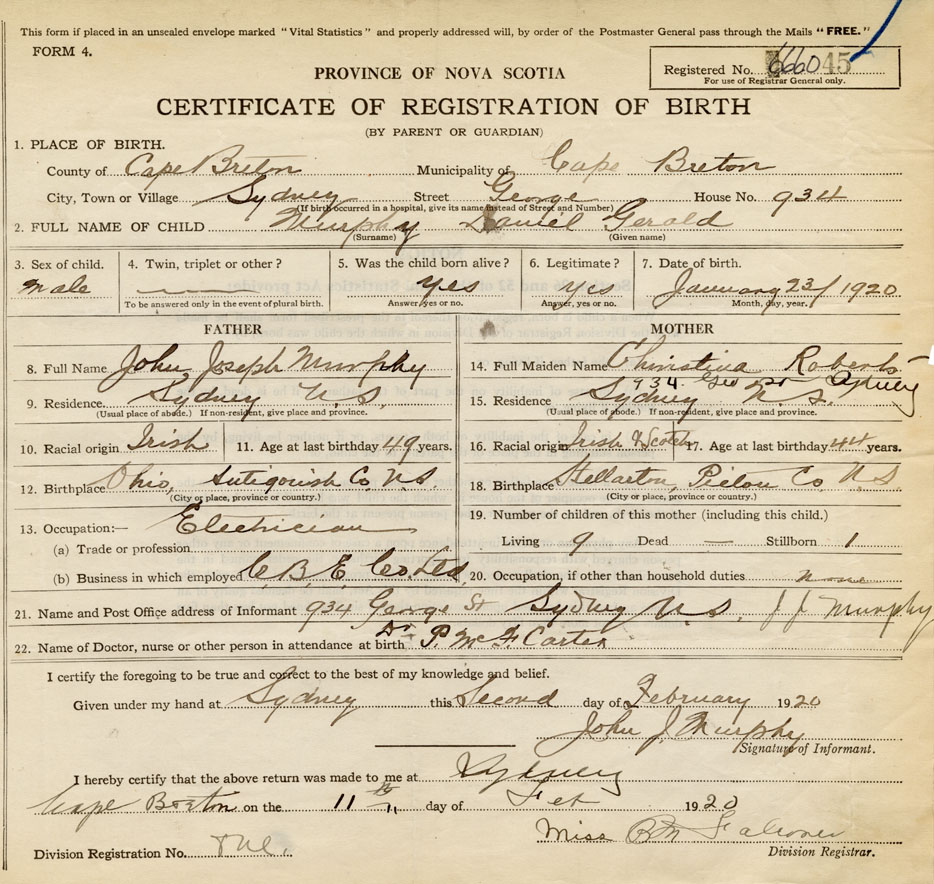 This form if placed in an unsealed envelope marked "Vital Statistics" and properly addressed will, by order of the Postmaster General pass through the Mails "FREE."
FORM 4.
Registered No. 66045
For use of Registrar General only.
PROVINCE OF NOVA SCOTIA
CERTIFICATE OF REGISTRATION OF BIRTH
(BY PARENT OR GUARDIAN)
1. PLACE OF BIRTH.
County of Cape Breton Municipality of Cape Breton
City, Town or Village Sydney Street George House No. 934
(If birth occurred in a hospital, give its name instead of Street and Number)
2. FULL NAME OF CHILD Murphy Daniel Gerald
(Surname) (Given name)
3. Sex of child. 4. Twin, triplet or other? 5. Was the child born alive? 6. Legitimate? 7. Date of birth.
Male — yes yes January 23/1920
To be answered only in the event of plural birth. Answer, yes or no. Answer, yes or no. Month, day, year.
FATHER MOTHER
8. Full Name John Joseph Murphy 14. Full Maiden Name Christina Roberts
934 Geo St Sydney
9. Residence Sydney N.S. 15. Residence Sydney N.S.
(Usual place of abode.) If non-resident, give place and province. (Usual place of abode.) If non-resident, give place and province.
10. Racial origin Irish 11. Age at last birthday 49 years. 16. Racial origin Irish & Scotch 17. Age at last birthday 44 years.
12. Birthplace Ohio, Antigonish Co. N.S. 18. Birthplace Stellarton, Pictou Co N S
(City or place, province or country.) (City or place, province or country.)
13. Occupation:— Electrician 19. Number of children of this mother (including this child.)
(a) Trade or profession Living 9 Dead — Stillborn 1
(b) Business in which employed C B E Co. Ltd. 20. Occupation, if other than household duties none
21. Name and Post Office address of Informant 934 George St Sydney N S J J Murphy
22. Name of Doctor, nurse or other person in attendance at birth Dr P. McF. Carter
I certify the foregoing to be true and correct to the best of my knowledge and belief.
Given under my hand at Sydney this Second day of February 1920
John J. Murphy
Signature of Informant.
I hereby certify that the above return was made to me at Sydney
Cape Breton on the 11th day of Feb 1920
Miss
Division Registration No. Division Registrar.